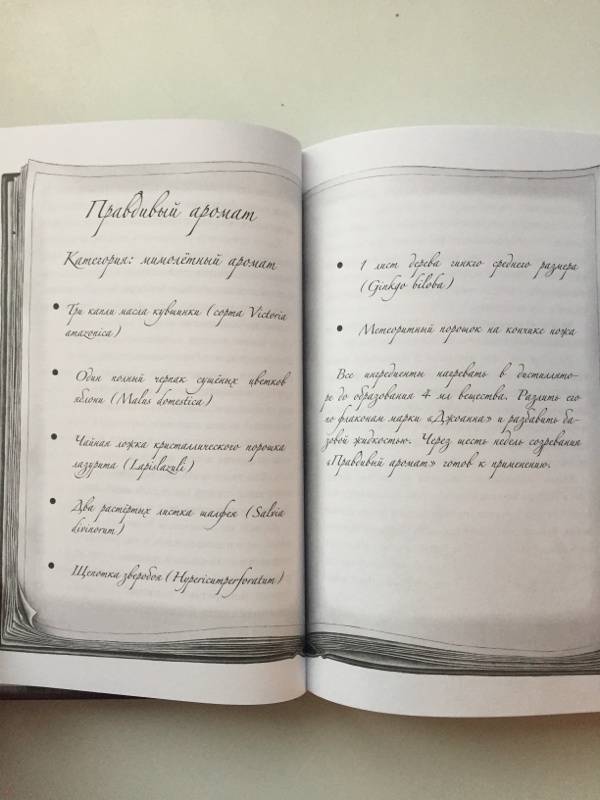 Правдивый аромат
Категория: мимолётный аромат
• Три капли масла кувшинки (сорта Victoria
amazonica)
• Один полный черпак сушёных цветков
яблони (Malus domestica)
• Чайная ложка кристаллического порошка
лазурита (Lapislazuli)
• Два растёртых листка шалфея (Salvia
divinorum)
• Щепотка зверобоя (Hypericumperforatum)
• 1 лист дерева гинкго среднего размера
(Ginkgo biloba)
• Метеоритный порошок на кончике ножа
Все ингредиенты нагревать в дистиллято-
ре до образования 4 мл вещества. Разлить его
по флаконам марки «Джоанна» и разбавить ба-
зовой жидкостью. Через шесть недель созревания
«Правдивый аромат» готов к применению.